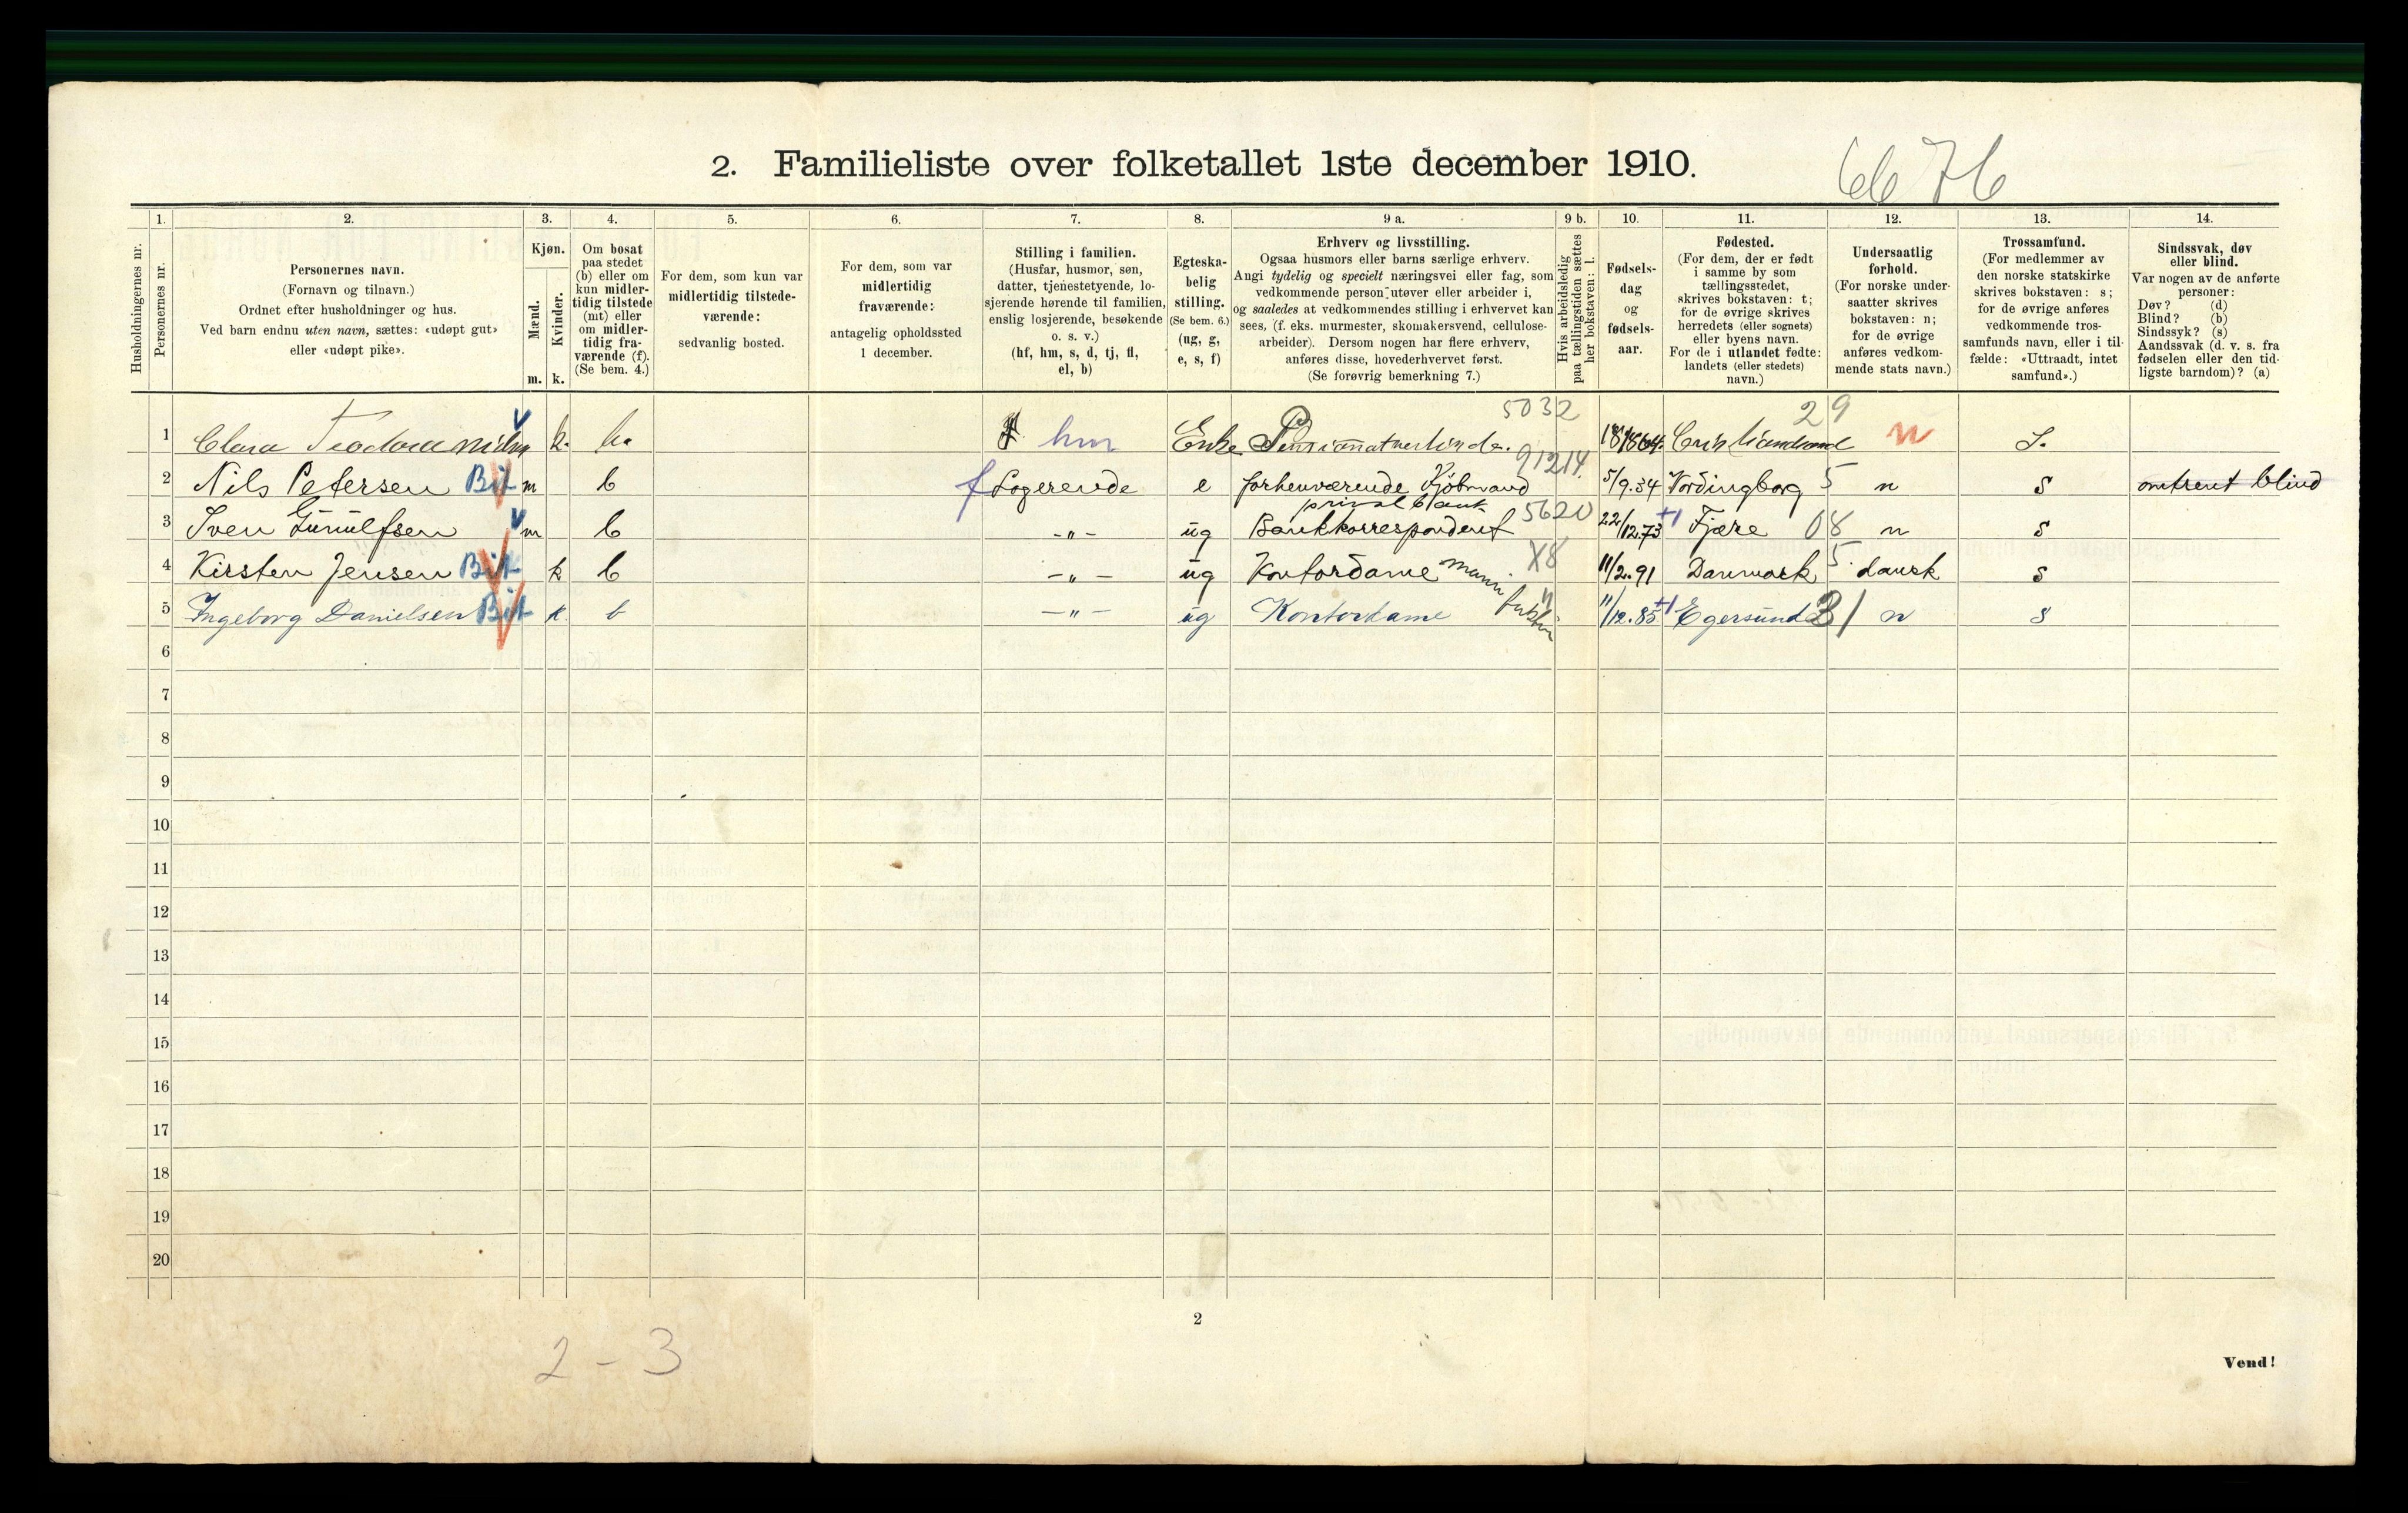 2. Familieliste over folketallet 1ste december 1910.
6676
1. 2. 3. 4. 5. 6. 7. 8. 9 a. 9 b. 10. 11. 12. 13. 14.
Husholdningernes nr.
Personernes nr.
Personernes navn.
(Fornavn og tilnavn.)
Ordnet efter husholdninger og hus.
Ved barn endnu uten navn, sættes: «udøpt gut»
eller «udøpt pike».
Kjøn.
Mænd.
Kvinder.
m. k.
Om bosat
paa stedet
(b) eller om
kun midler-
tidig tilstede
(mt) eller
om midler-
tidig fra-
værende (f).
(Se bem. 4.)
For dem, som kun var
midlertidig tilstede-
værende:
sedvanlig bosted.
For dem, som var
midlertidig
fraværende:
antagelig opholdssted
1 december.
Stilling i familien.
(Husfar, husmor, søn,
datter, tjenestetyende, lo-
sjerende hørende til familien,
enslig losjerende, besøkende
o. s. v.)
(hf, hm, s, d, tj, fl,
el, b)
Egteska-
belig
stilling.
(Se bem. 6.)
(ug, g,
e, s, f)
Erhverv og livsstilling.
Ogsaa husmors eller barns særlige erhverv.
Angi tydelig og specielt næringsvei eller fag, som
vedkommende person utøver eller arbeider i,
og saaledes at vedkommendes stilling i erhvervet kan
sees, (f. eks. murmester, skomakersvend, cellulose-
arbeider). Dersom nogen har flere erhverv,
anføres disse, hovederhvervet først.
(Se forøvrig bemerkning 7.)
Hvis arbeidsledig
paa tællingstiden sættes
her bokstaven: l.
Fødsels-
dag
og
fødsels-
aar.
Fødested.
(For dem, der er født
i samme by som
tællingsstedet,
skrives bokstaven: t;
for de øvrige skrives
herredets (eller sognets)
eller byens navn.
For de i utlandet fødte:
landets (eller stedets)
navn.)
Undersaatlig
forhold.
(For norske under-
saatter skrives
bokstaven: n;
for de øvrige
anføres vedkom-
mende stats navn.)
Trossamfund.
(For medlemmer av
den norske statskirke
skrives bokstaven: s;
for de øvrige anføres
vedkommende tros-
samfunds navn, eller i til-
fælde: «Uttraadt, intet
samfund».)
Sindssvak, døv
eller blind.
Var nogen av de anførte
personer:
Døv? (d)
Blind? (b)
Sindssyk? (s)
Aandssvak (d. v. s. fra
fødselen eller den tid-
ligste barndom)? (a)
5032 29
1 Clara Teodora k. b. hm Enke Pensionatvertinde. n S.
91214
2 Nils Petersen Bit m b f Logerende e forhenværende Kjöbmand 5/9.34 Vordingborg 5 n s omtrent blind
privat bank 5620
3 Iven Gunulfsen m b -"- ug Bankkorrespondent 22/12.73 +1 Fjære 08 n s
X8
4 Kirsten Jensen Bit k b -"- ug Kontordame 11/2.91 Danmark 5 dansk s
5 Ingeborg Danielsen Bit k b -"- ug Kontordame " 11/12.85 +1 Egersund 31 n s
6
7
8
9
10
11
12
13
14
15
16
17
18
19
20
2
2 - 3
Vend!